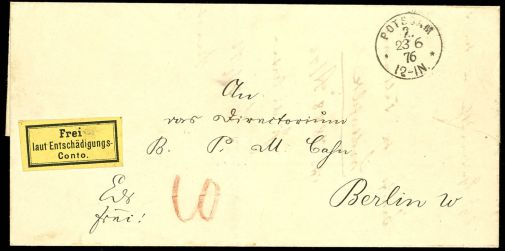 POTSDAM
2.
23 6
76
* 12-1N. *
An
das Directorium
B. P. M Bahn
Berlin W
Frei
laut Entschädigungs-
Conto.
frei!